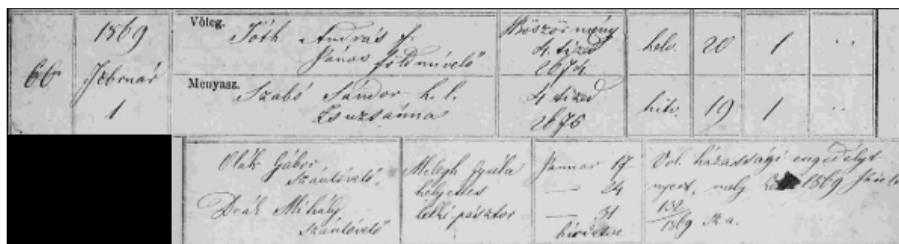 66
1869
Február
1
Vőleg.
Tóth András f.
János földmívelő
Böszörmény
4 tized
2674
helv.
20
1
Menyasz.
Szabó Sándor h. l.
Zsuzsánna
4 tized
2676
helv.
19
1
Oláh Gábor
szántóvető
Deák Mihály
szántóvető
Melegh Gyula
helyettes
lelki pásztor
Január 17
— 24
— 31
hirdetve
Vől. házassági engedélyt
nyert, mely 1869
1869 sz. a.